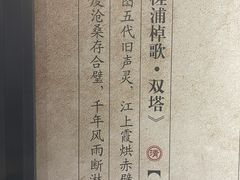 浦棹歌·双塔》
清
图五代旧声灵，江上霞烘赤壁
沧桑存合璧，千年风雨断